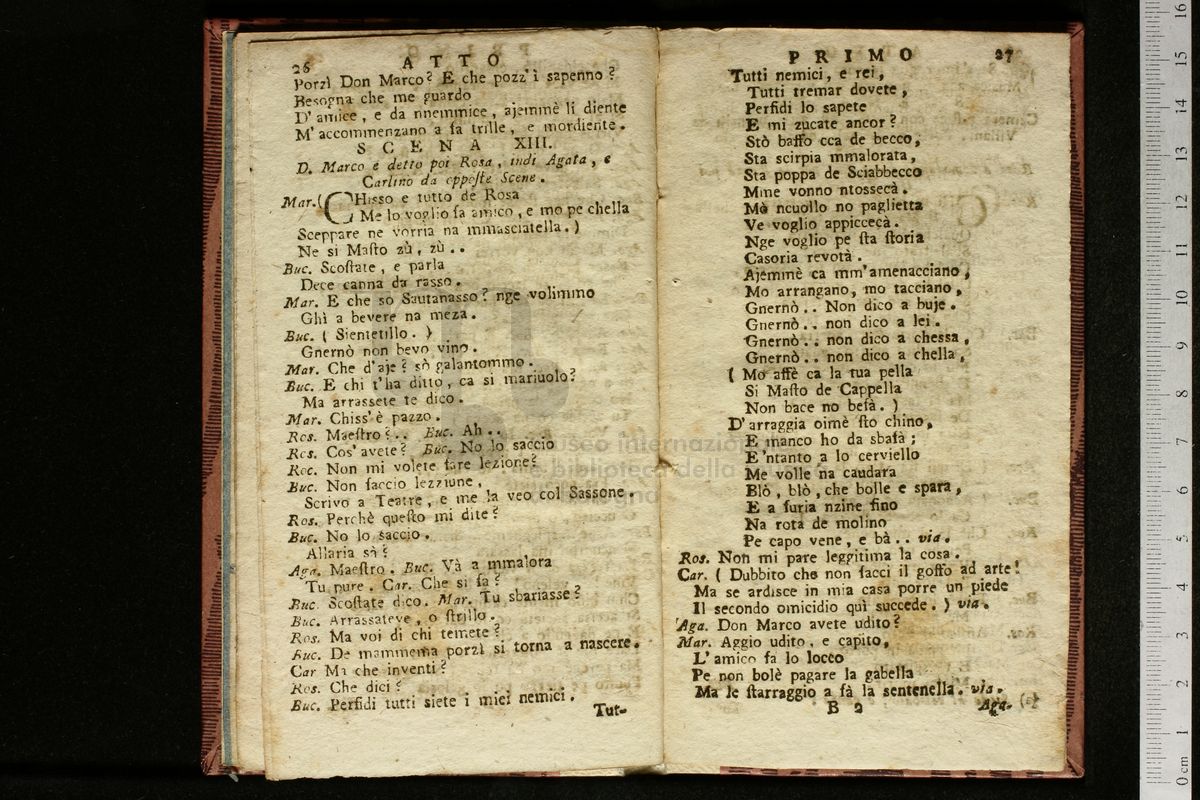 26 ATTO
Porzì Don Marco? E che pozz'ì sapenno?
Besogna che me guardo
D'amice, e da nnemmice, ajemmè li diente
M'accommenzano a fa trille, e mordiente.
SCENA XIII.
D. Marco e detto poi Rosa, indi Agata, e
Carlino da oppoſte Scene.
Mar. (CHisso e tutto de Rosa
Me lo voglio fa amico, e mo pe chella
Sceppare ne vorria na mmasciatella.)
Ne si Maſto zù, zù..
Buc. Scoſtate, e parla
Dece canna da rasso.
Mar. E che so Sautanasso? nge volimmo
Ghì a bevere na meza.
Buc. (Sientetillo.)
Gnernò non bevo vino.
Mar. Che d'aje? sò galantommo.
Buc. E chi t'ha ditto, ca si mariuolo?
Ma arrassete te dico.
Mar. Chiss'è pazzo.
Ros. Maeſtro?.. Buc. Ah..
Ros. Cos'avete? Buc. No lo saccio
Roc. Non mi volete fare lezione?
Buc. Non faccio lezzione,
Scrivo a Teatre, e me la veo col Sassone.
Ros. Perchè queſto mi dite?
Buc. No lo saccio.
Allaria sà?
Aga. Maeſtro. Buc. Và a mmalora
Tu pure. Car. Che si fa?
Buc. Scoſtate dico. Mar. Tu sbariasse?
Buc. Arrassateve, o ſtrillo.
Ros. Ma voi di chi temete?
Buc. De mammema porzì si torna a nascere.
Car Ma che inventi?
Ros. Che dici?
Buc. Perfidi tutti siete i miei nemici.
Tut-
PRIMO 27
Tutti nemici, e rei,
Tutti tremar dovete,
Perfidi lo sapete
E mi zucate ancor?
Stò baffo cca de becco,
Sta scirpia mmalorata,
Sta poppa de Sciabbecco
Mme vonno ntossecà.
Mò ncuollo no paglietta
Ve voglio appiccecà.
Nge voglio pe ſta ſtoria
Casoria revotà.
Ajemmè ca mm'amenacciano,
Mo arrangano, mo tacciano,
Gnernò.. Non dico a buje.
Gnernò.. non dico a lei.
Gnernò.. non dico a chessa,
Gnernò.. non dico a chella,
(Mo affè ca la tua pella
Si Maſto de Cappella
Non bace no befà.)
D'arraggia oimè ſto chino,
E manco ho da sbafà;
E 'ntanto a lo cerviello
Me volle na caudara
Blò, blò, che bolle e spara,
E a furia nzine fino
Na rota de molino
Pe capo vene, e bà.. via.
Ros. Non mi pare leggitima la cosa.
Car. (Dubbito che non facci il goffo ad arte!
Ma se ardisce in mia casa porre un piede
Il secondo omicidio quì succede.) via.
Aga. Don Marco avete udito?
Mar. Aggio udito, e capito,
L'amico fa lo locco
Pe non bolè pagare la gabella
Ma le ſtarraggio a fà la sentenella. via.
B 2 Aga-